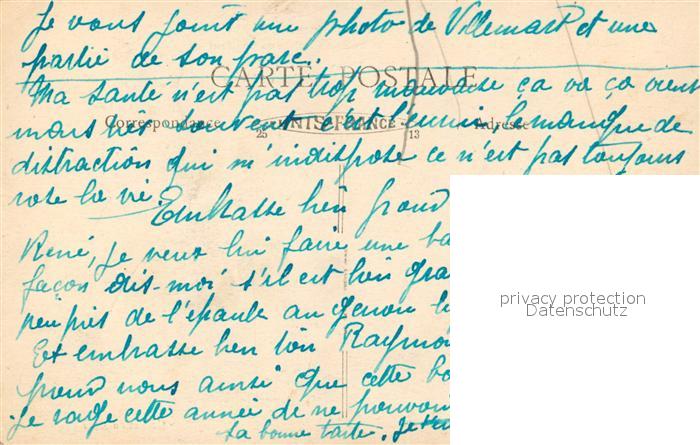 Je vous joint une photo de Villemart et une
partie de son parc.
CARTE POSTALE
Ma santé n'est pas trop mauvaise ça va ça vient
Correspondance
Adresse
25 UNIS-FRANCE 13
mais souvent c'est l'ennui le manque de
distraction qui m'indispose ce n'est pas toujours
rose la vie.
Embrasse bien
René, je veux lui faire une
façon dis-moi s'il est bien
peu près de l'épaule au genou
privacy protection
Datenschutz
Et embrasse bien ton
pour nous ainsi que cette
Je rage cette année de ne
ta bonne tante.